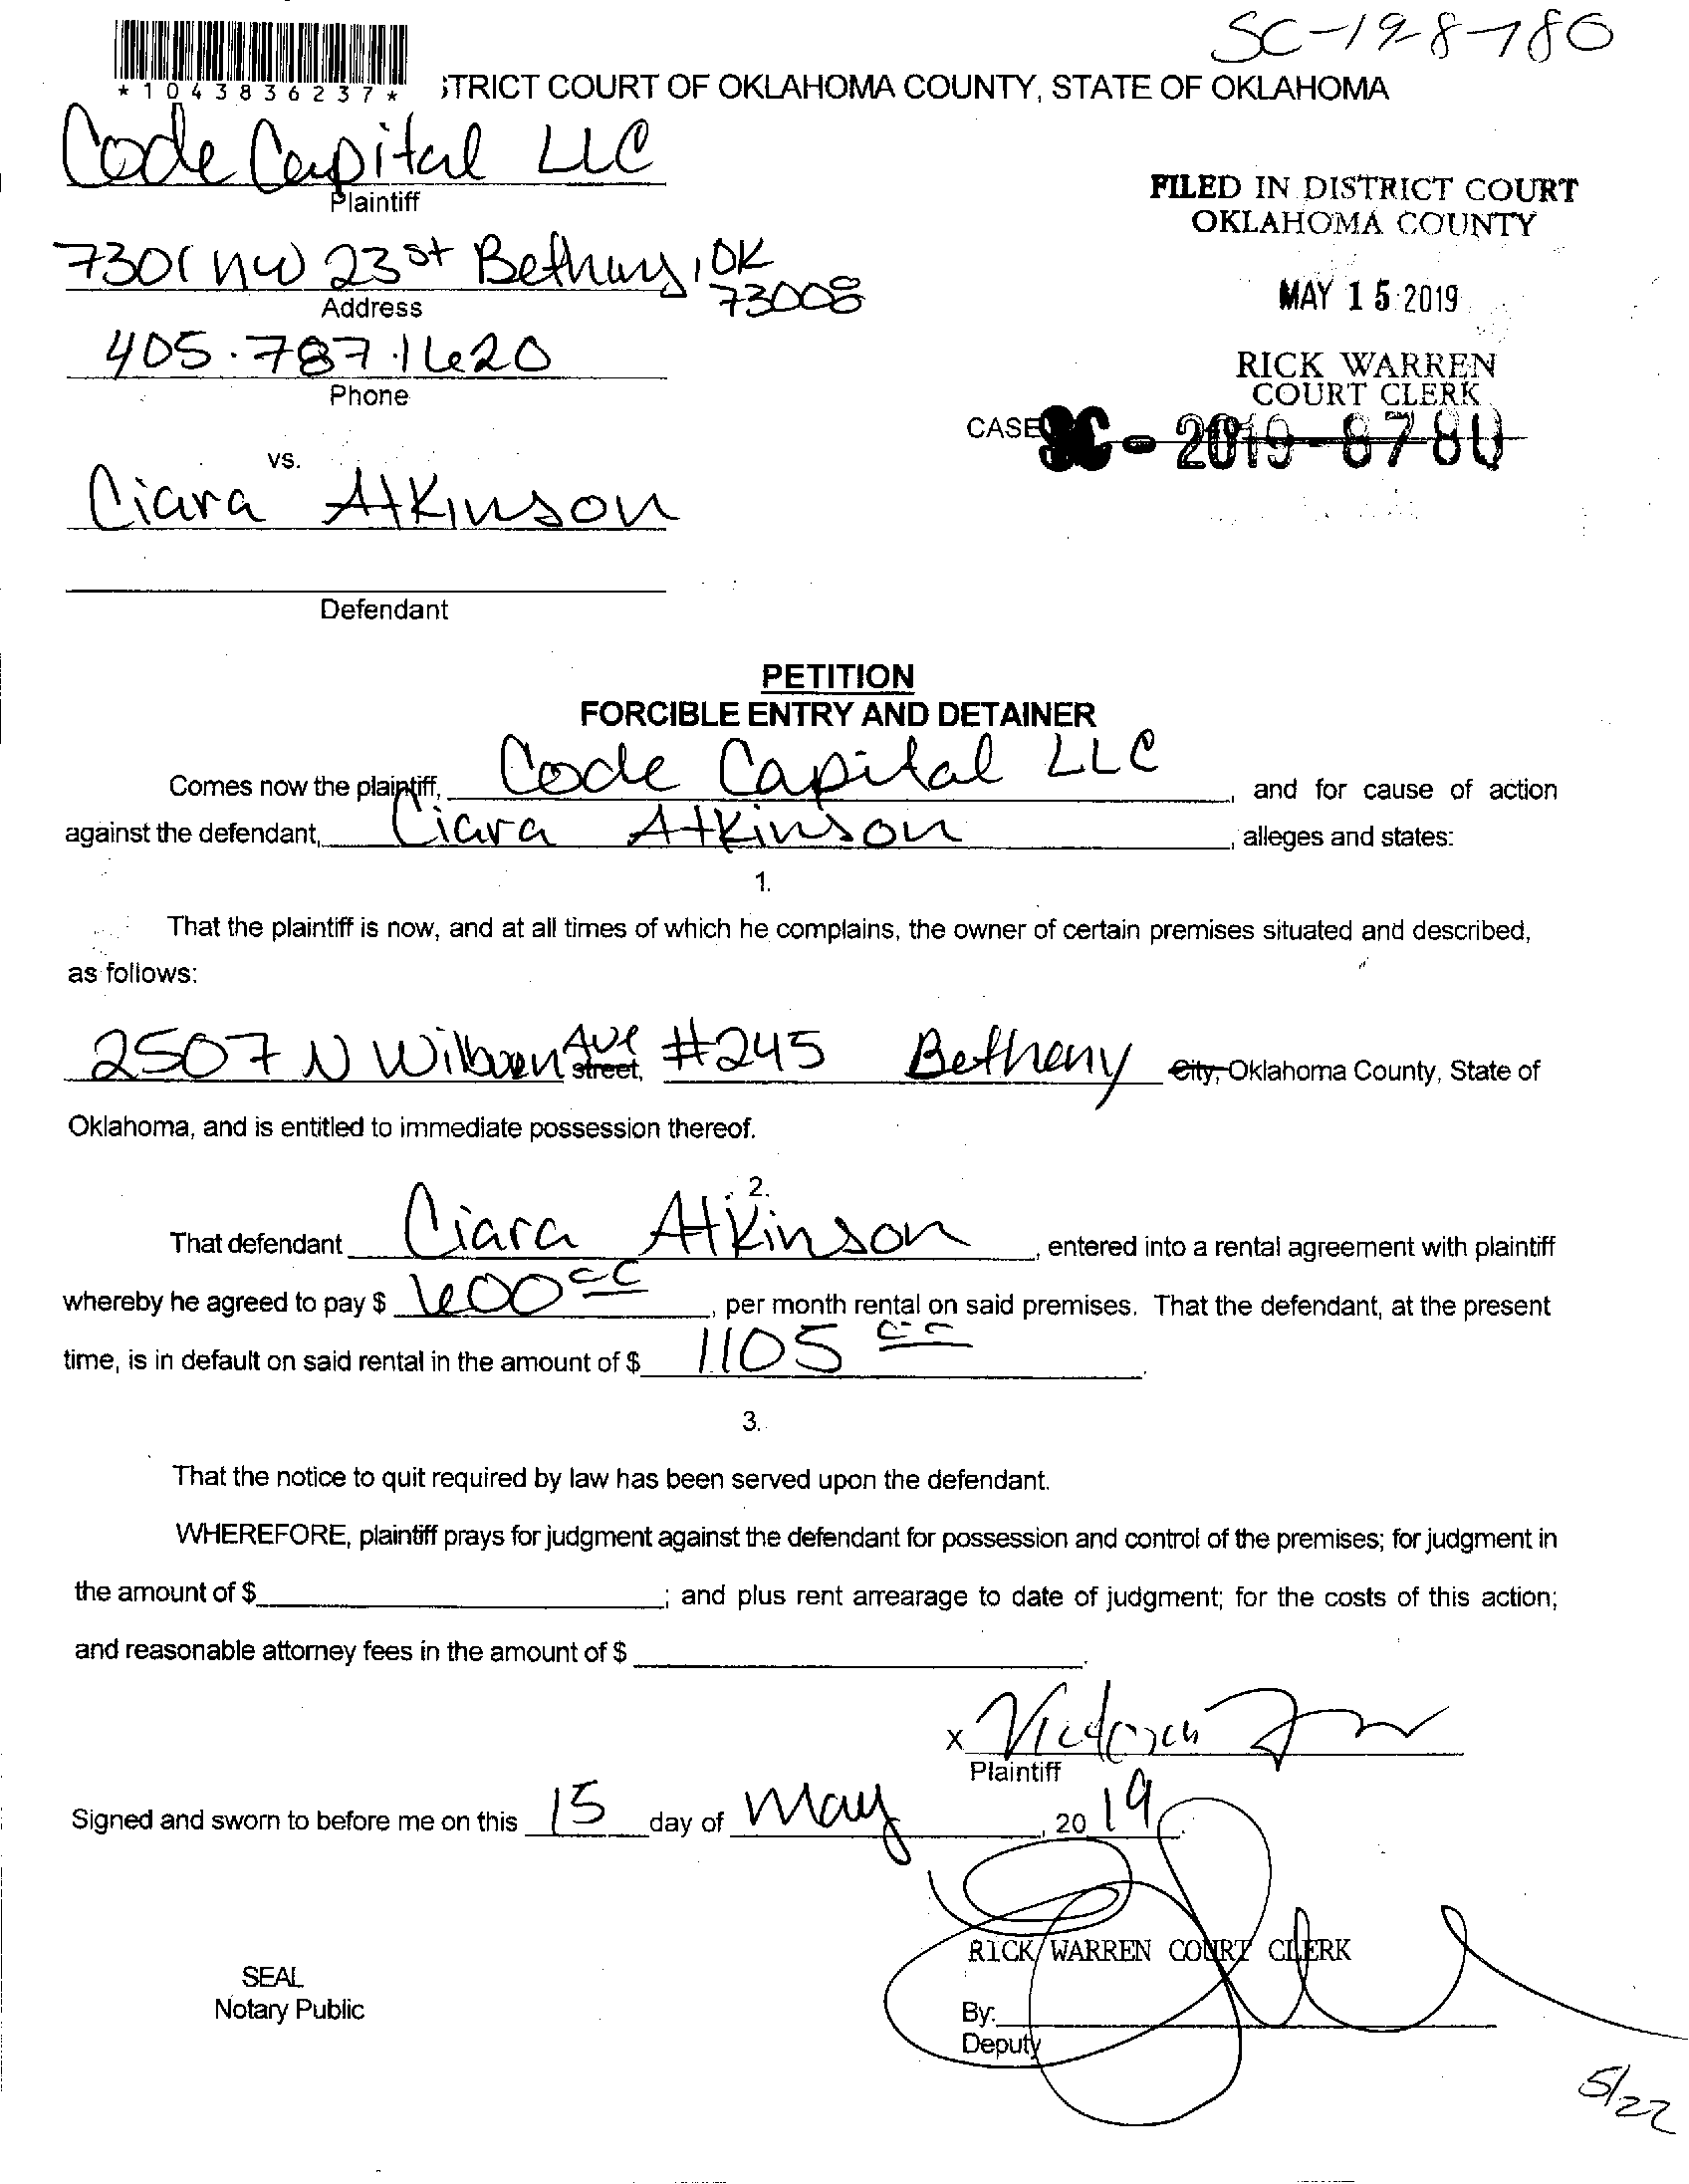 SC-19-8780
*1043836237*
STRICT COURT OF OKLAHOMA COUNTY, STATE OF OKLAHOMA
Code Capital LLC
Plaintiff
FILED IN DISTRICT COURT
OKLAHOMA COUNTY
7301 NW 23 st Bethany, OK
73008
Address
MAY 15 2019
405.787.1620
Phone
RICK WARREN
COURT CLERK
CASE SC - 2019 - 8780
vs.
Ciara Atkinson
Defendant
PETITION
FORCIBLE ENTRY AND DETAINER
Comes now the plaintiff, Code Capital LLC, and for cause of action
against the defendant, Ciara Atkinson, alleges and states:
1.
That the plaintiff is now, and at all times of which he complains, the owner of certain premises situated and described,
as follows:
2507 N Wilburn Ave street, #245 Bethany City, Oklahoma County, State of
Oklahoma, and is entitled to immediate possession thereof.
2.
That defendant Ciara Atkinson, entered into a rental agreement with plaintiff
whereby he agreed to pay $ 600 00, per month rental on said premises. That the defendant, at the present
time, is in default on said rental in the amount of $ 1105 00.
3.
That the notice to quit required by law has been served upon the defendant.
WHEREFORE, plaintiff prays for judgment against the defendant for possession and control of the premises; for judgment in
the amount of $ ; and plus rent arrearage to date of judgment; for the costs of this action;
and reasonable attorney fees in the amount of $ .
X Victoria
Plaintiff
Signed and sworn to before me on this 15 day of May, 20 19.
RICK WARREN COURT CLERK
SEAL
Notary Public
By:
Deputy
5/22